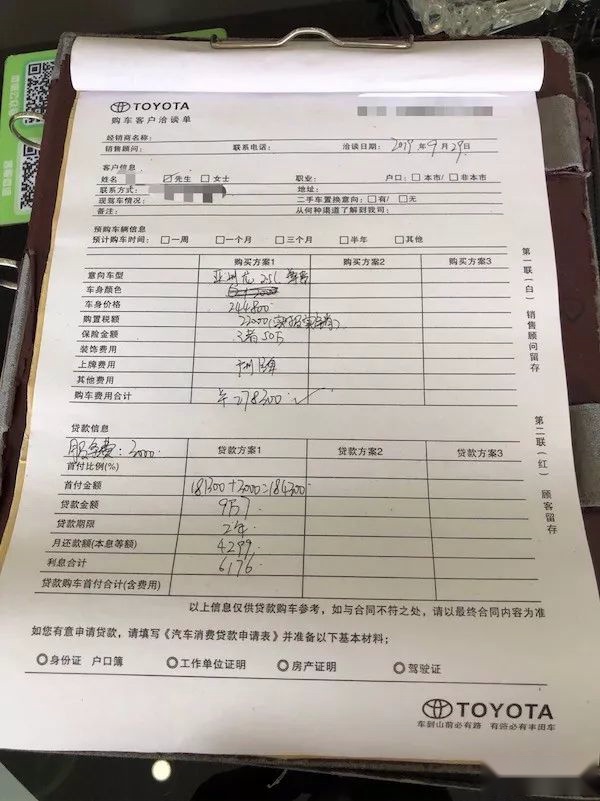 TOYOTA
购车客户洽谈单
经销商名称:
销售顾问: 联系电话: 洽谈日期: 2019年9月29日
客户信息
姓名 ☑先生 □女士 职业: 户口: □本市/ □非本市
联系方式: 地址:
现驾车情况: 二手车置换意向: □有/ □无
备注: 从何种渠道了解到我司:
预购车辆信息
预计购车时间: □一周 □一个月 □三个月 □半年 □其他
购买方案1 购买方案2 购买方案3
意向车型 亚洲龙 2.5L
车身颜色
车身价格 244800
购置税额 22000
保险金额 三者50万
装饰费用
上牌费用
其他费用
购车费用合计 ¥278300 ✓
贷款信息
服务费: 3000. 贷款方案1 贷款方案2 贷款方案3
首付比例(%)
首付金额 181300+3000=184300
贷款金额 9万
贷款期限 2年
月还款额(本息等额) 4299.
利息合计 6176
贷款购车首付合计(含费用)
以上信息仅供贷款购车参考，如与合同不符之处，请以最终合同内容为准
如您有意申请贷款，请填写《汽车消费贷款申请表》并准备以下基本材料;
◎身份证 户口簿 ◎工作单位证明 ◎房产证明 ◎驾驶证
TOYOTA
车到山前必有路 有路必有丰田车
第一联(白) 销售顾问留存
第二联(红) 顾客留存